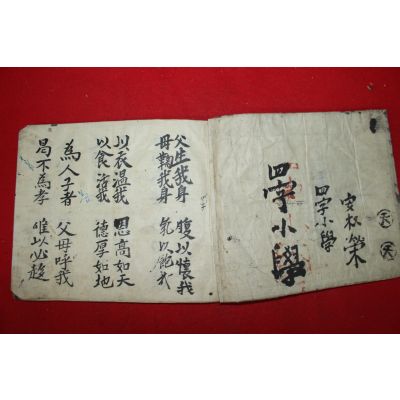 四字小學
四字小學
父生我身 腹以懷我
母鞠我身 乳以飽我
以衣温我 恩高如天
以食活我 德厚如地
為人子者 父母呼我
曷不為孝 唯以必趨